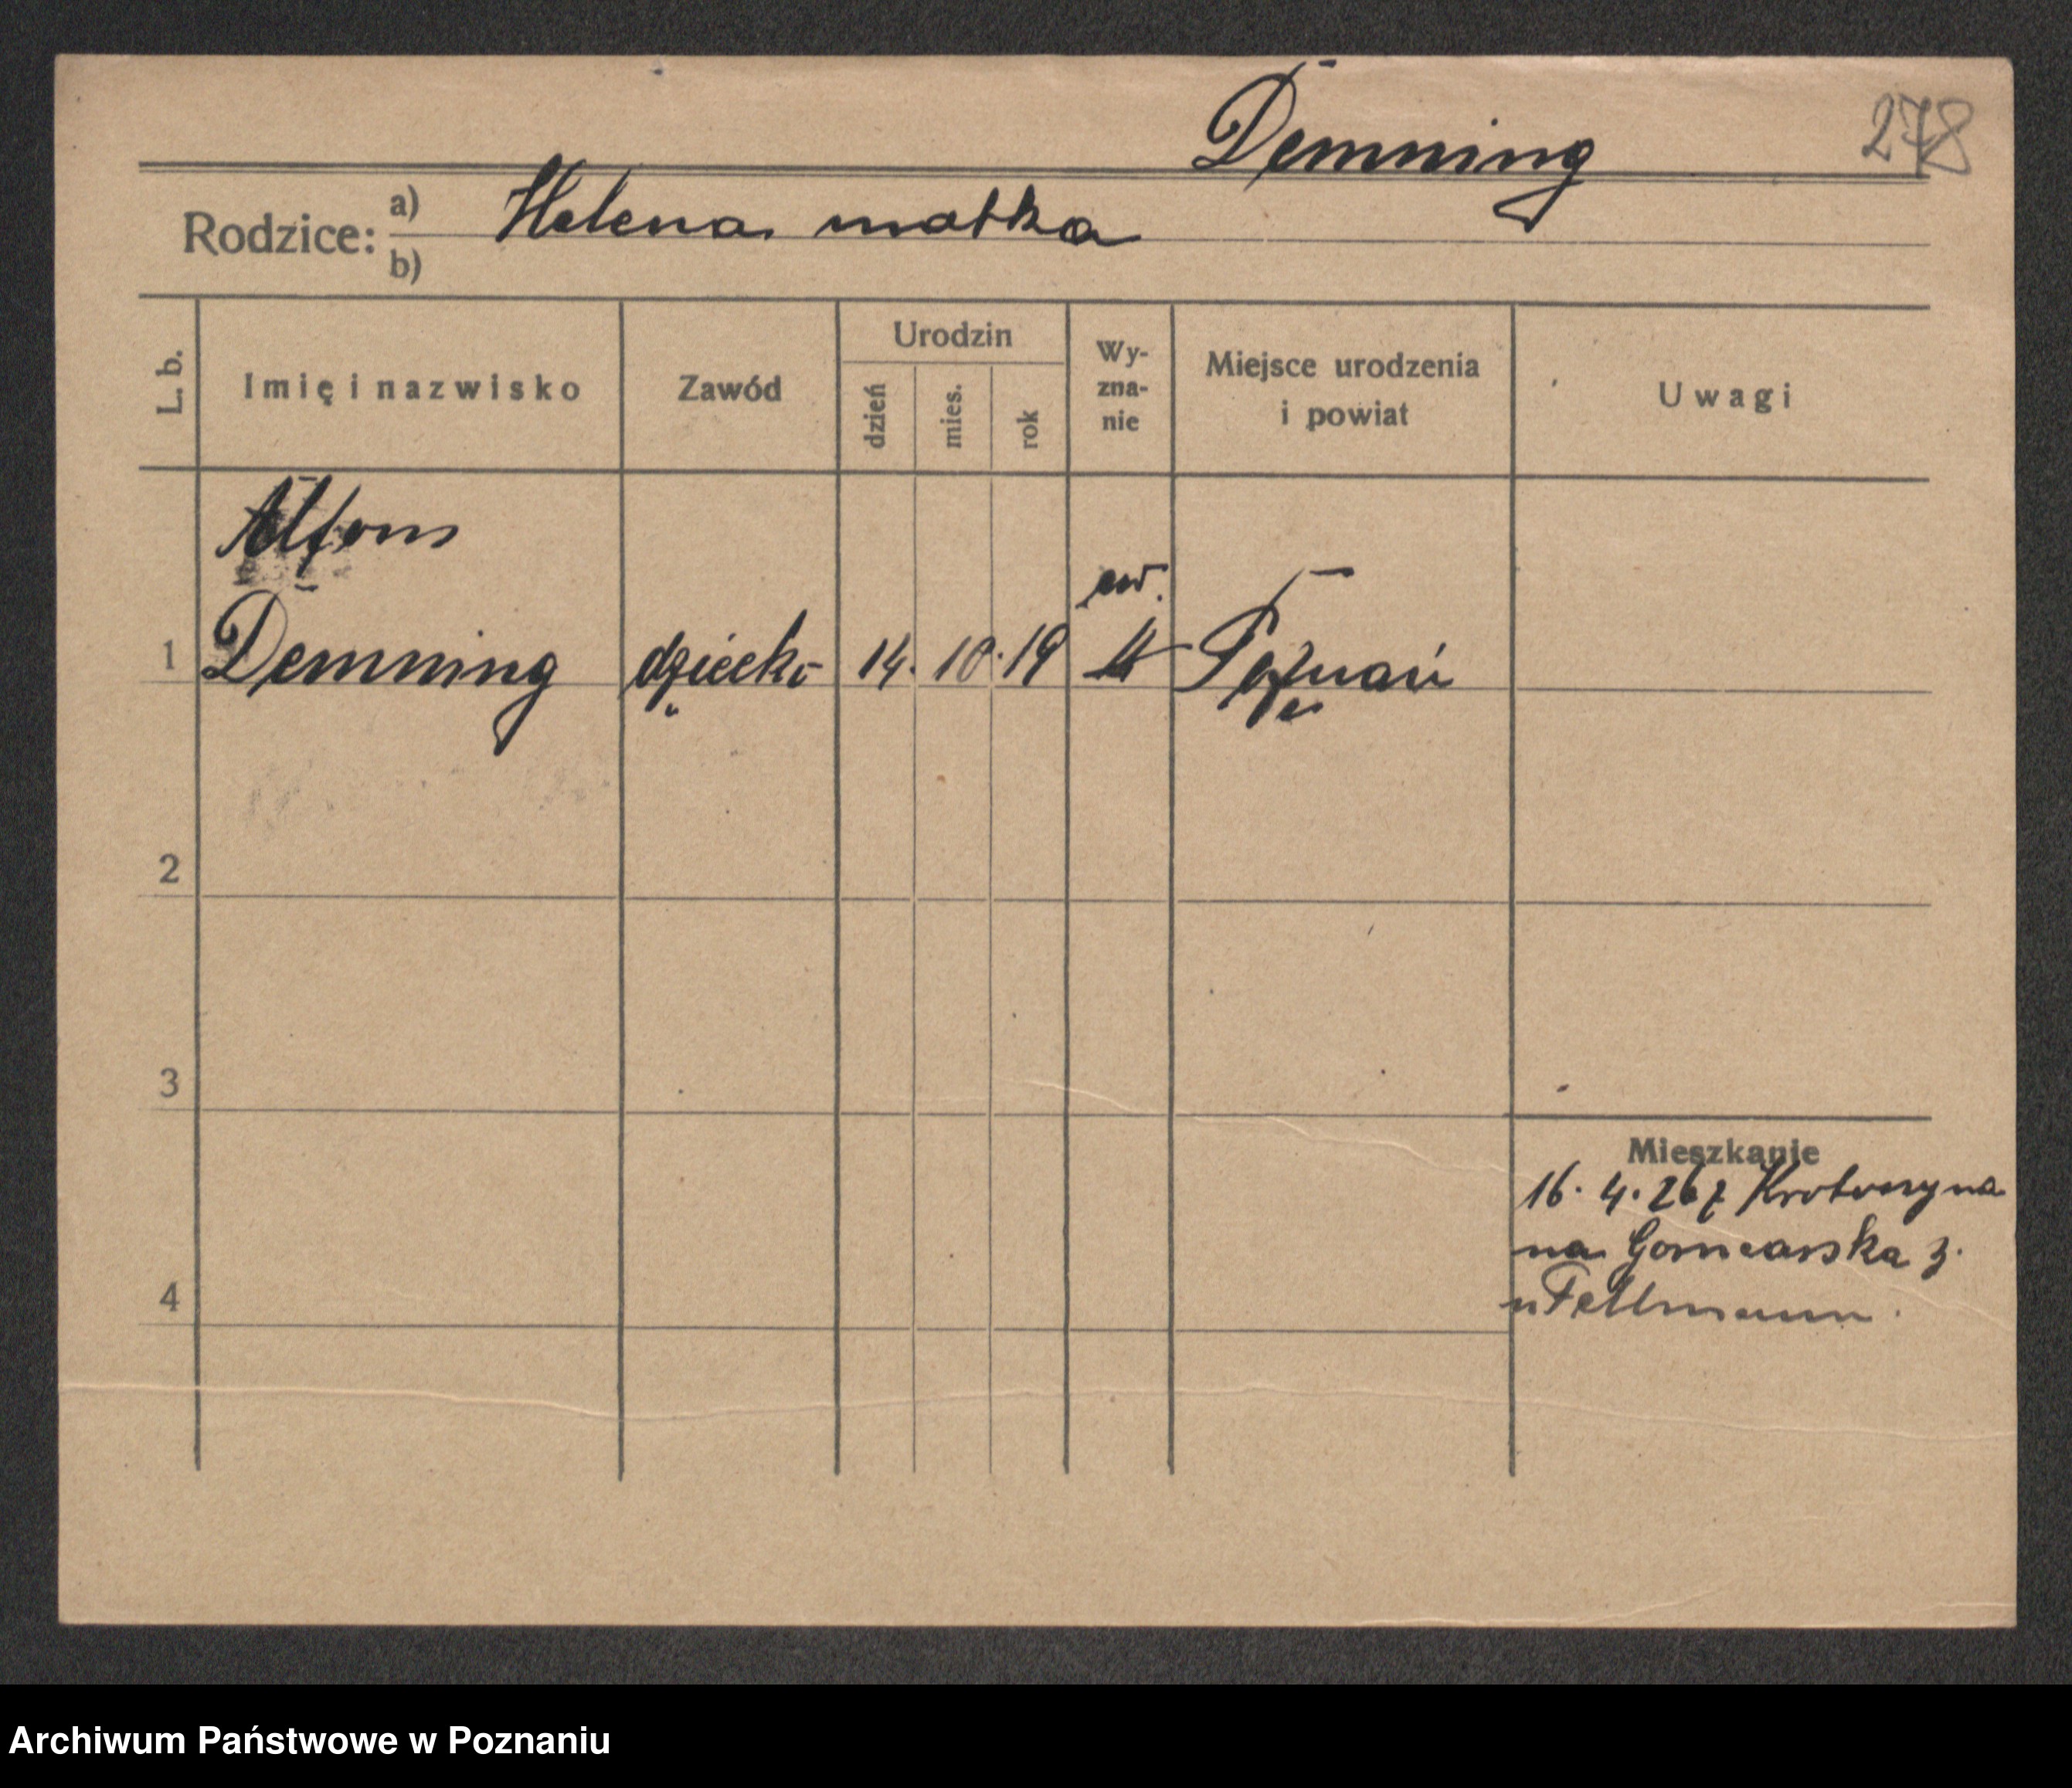 Demning
278
Rodzice: a) Helena matka
b)
L. b.
Imię i nazwisko
Zawód
Urodzin
dzień
mies.
rok
Wy-
zna-
nie
Miejsce urodzenia
i powiat
Uwagi
Alfons
ew.
1 Demning dziecko 14. 10. 19 Poznań
2
3
4
Mieszkanie
16. 4. 26 z Krotoszyna
na Garncarska 3.
u Fellmann.
Archiwum Państwowe w Poznaniu